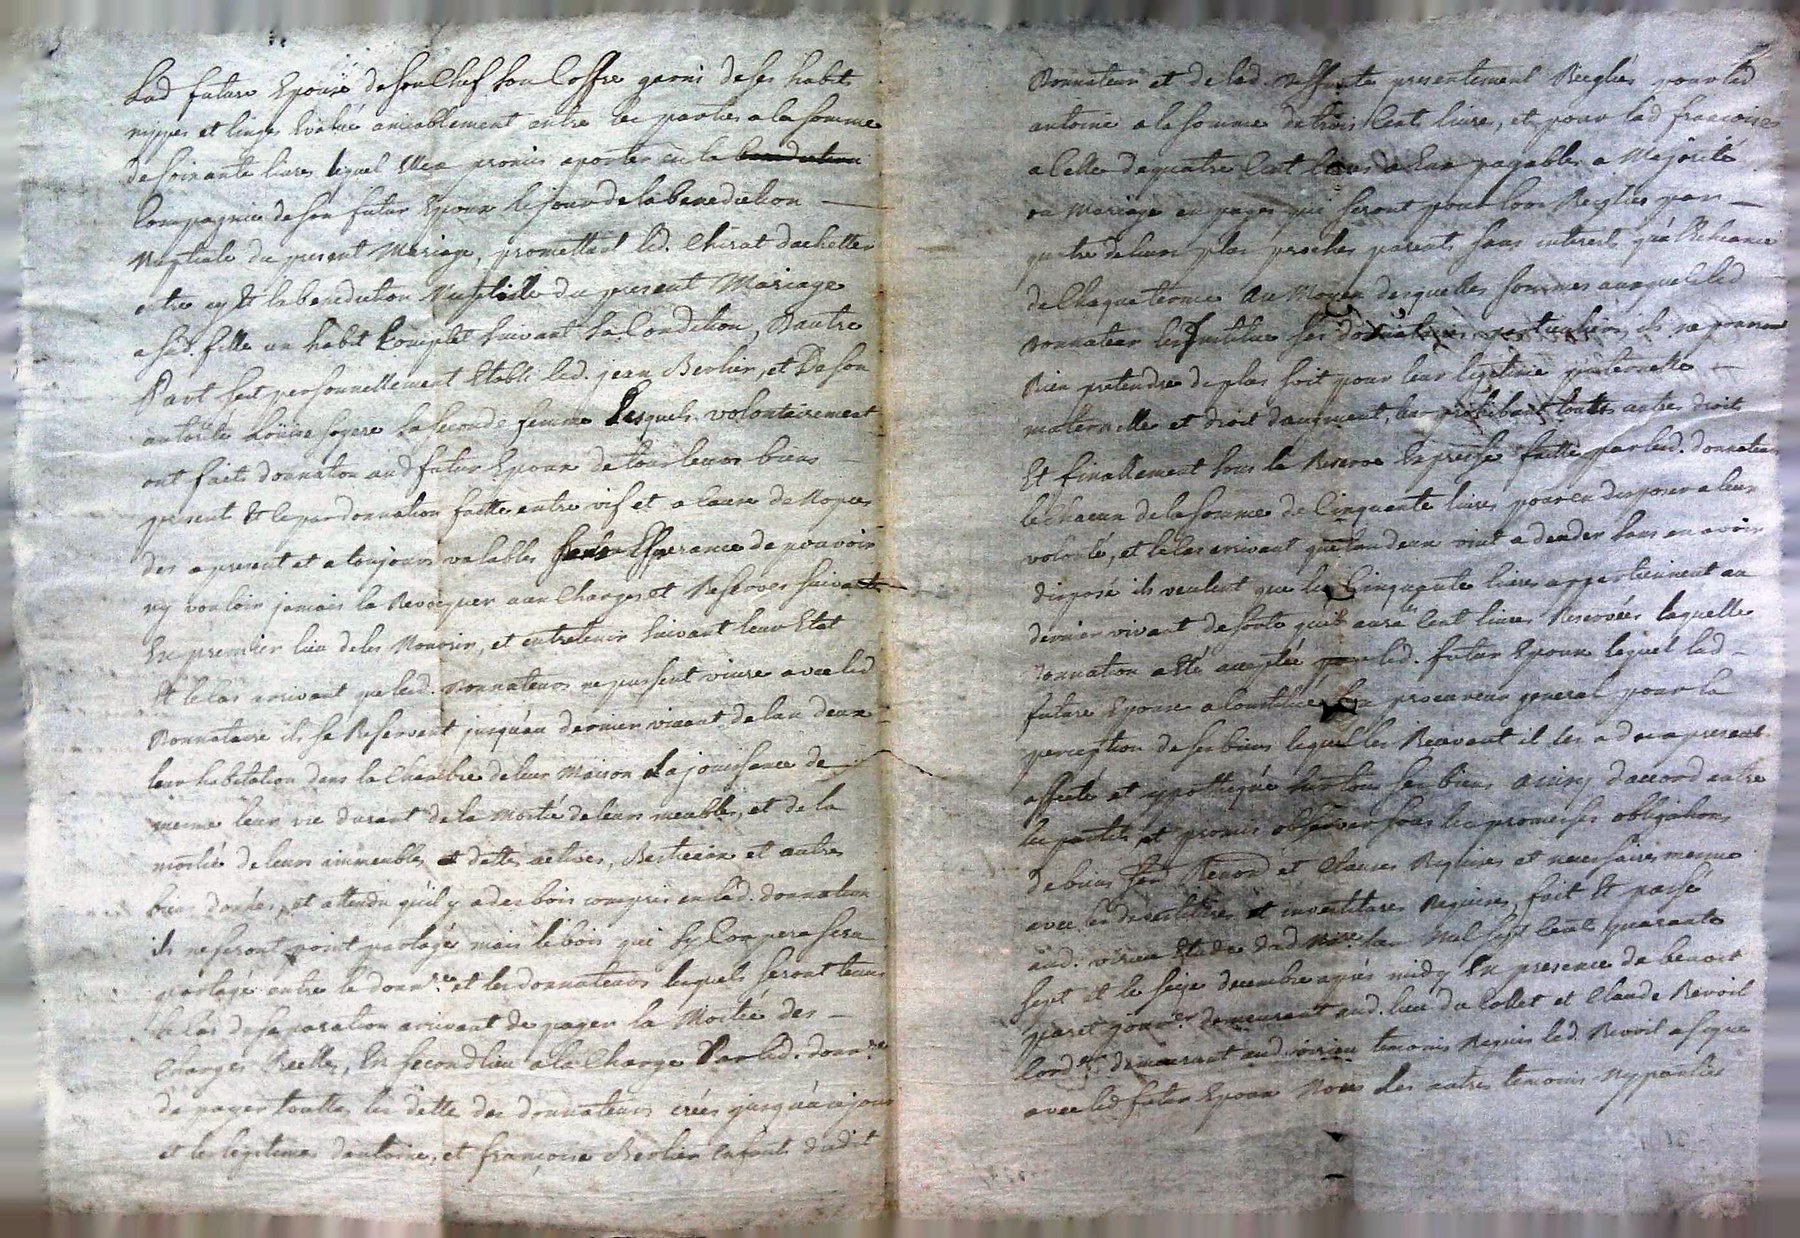 Lad future Epouse de son Chef son Coffre garni de ses habit
nippes et linges Evalué amiablement entre les parties a la somme
de soixante livres lequel Elle a promis aporter en la
Compagnie de son futur Epoux le jour de la benediction
Nuptiale du present Mariage, promettant led. Chirat dachetter
entre cy Et la benediction Nuptialle du present Mariage
a sad. fille un habit Complet suivant sa Condition, Dautre
Part sest personnellement Etabli led. jean Berlier, et De son
autorité Louise sogere sa seconde femme Lesquels volontairement
ont fait donnation aud futur Epoux de tous leurs biens
present Et ce par donnation faitte entre vif et a cause de Nopces
des apresent et a toujours valables sans Esperance de pouvoir
ny vouloir jamais la Revocquer aux Charges et Reserves suivantes
En premier lieu de les Nourrir, et entretenir suivant leur Etat
Et le cas arrivant que led. Donnateurs ne pussent vivre avec led
Donnataire ils se Reservent jusquau dernier vivant de lun deux
leur habitation dans la Chambre de leur Maison La jouissance de
meme leur vie durant de la Moitié de leurs meubles, et de la
moitié de leurs immeubles et dettes actives, Bestieaux et autres
biens donnés, et attendu quil y a des bois compris en lad. donnation
ils ne seront point partagé mais le bois qui sy Coupera sera
partagé entre le donn.re et les donnateurs lequels seront tenus
le Cas de separation arrivant de payer la Moitié des
Charges Reelles, En second lieu a la Charge Par led. donn.re
de payer touttes les dette des donnateurs crées jusqua ce jour
et les legitimes dantoine, et françoise Berlier Enfants dudit
Donnateur et de lad. deffunte presentement Reglés pour led
antoine a la somme de trois Cent livre, et pour lad francoise
a Celle de quatre Cent livres de Eux payables a Majorité
ou Mariage en payes qui seront pour lors Reglées par
quatre de leurs plus proches parents sans interets qua lEcheance
de Chaque terme Au Moyen desquelles sommes auxquels led
Donnateur les Institue ses donataires particuliers ils ne pourront
Rien pretendre de plus soit pour leur legitime paternelle
maternelle et droit daugment, leur prohibant touts autres droits
Et finallement sous la Reserve Expresse faitte par led. donnateurs
le Chacun de la somme de Cinquante livres pour en disposer a leur
volonté, et le Cas arrivant que lun deux vint a deceder sans en avoir
disposé ils veulent que les Cinquante livres appartiennent au
dernier vivant de sorte quil aura les Cent livres Reservées laquelle
donnation a Eté acceptée par led. futur Epoux lequel lad
future Epouse a Constitué son procureur general pour la
perception de ses biens lequel les Recevant il les a des a present
affecté et yppothequé sur tous ses biens Ainsy daccord entre
les parties et promis observer sous les promesses obligations
de biens Renon et Clauses Requises et necessaires meme
avec les devestitures et investitures Requises, fait Et passé
aud. virieu Etude dud No.re lan Mil sept Cent quarante
sept et le seize decembre apres midy En presence de benoit
paret jour.er demeurant aud. lieu du Collet et Claude Revoil
Cord.er demeurant aud. virieu temoins Requis led. Revoil a signé
avec led futur Epoux Non Les autres temoins Ny parties